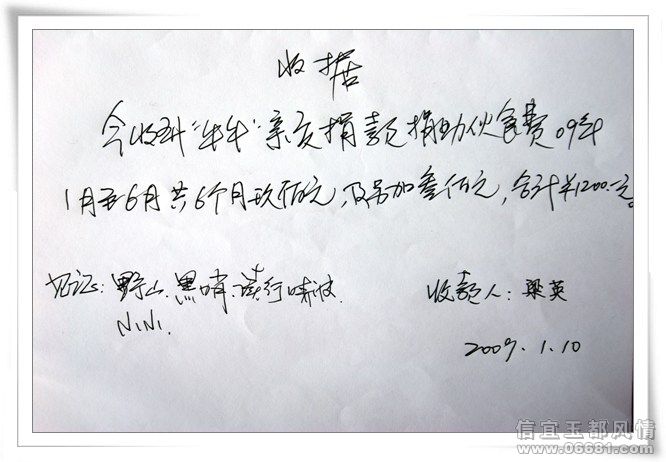 收据
今收到"牛牛"亲友捐款捐助伙食费09年
1月至6月共6个月玖佰元,及另加叁佰元,合计¥1200.-元。
见证:野山.黑哨.
NiNi.
收款人:梁英
2009.1.10
信宜玉都风情
www.06681.com